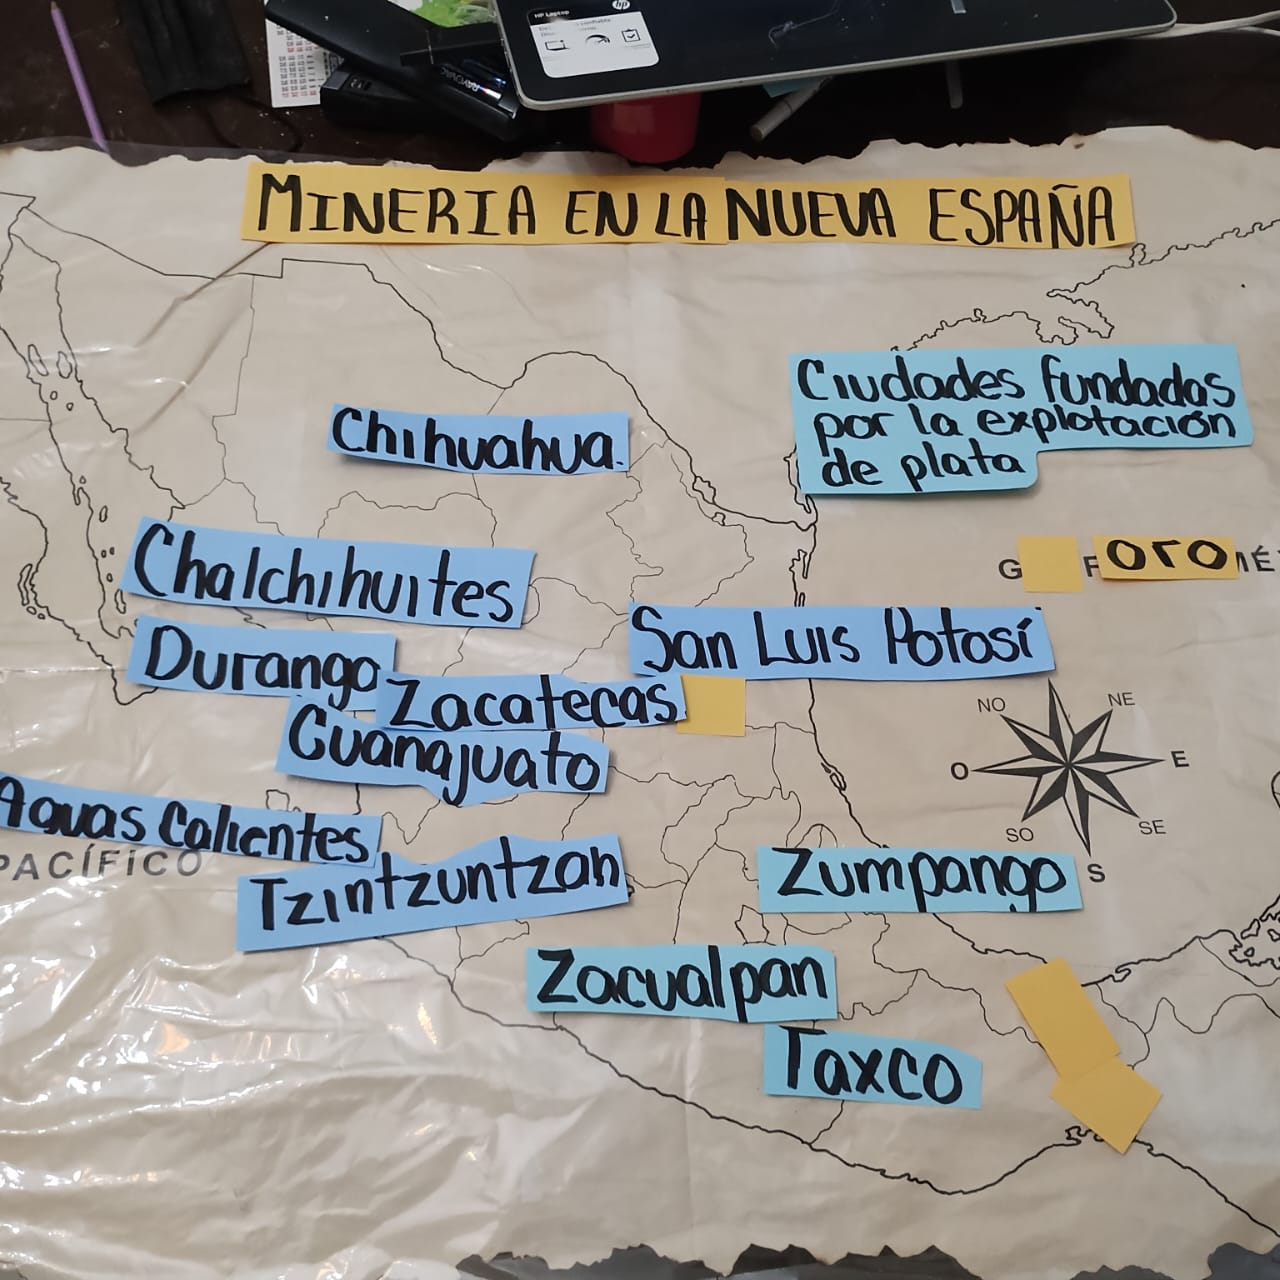 hp
HP Laptop
RAYOVAC
MINERIA EN LA NUEVA ESPAÑA
Ciudades fundadas
por la explotación
de plata
Chihuahua.
Chalchihuites
G F oro MÉ
Durango
San Luis Potosí
Zacatecas
Guanajuato
NO NE
O E
SO SE
S
Aguas Calientes
PACÍFICO
Tzintzuntzan
Zumpango
Zacualpan
Taxco